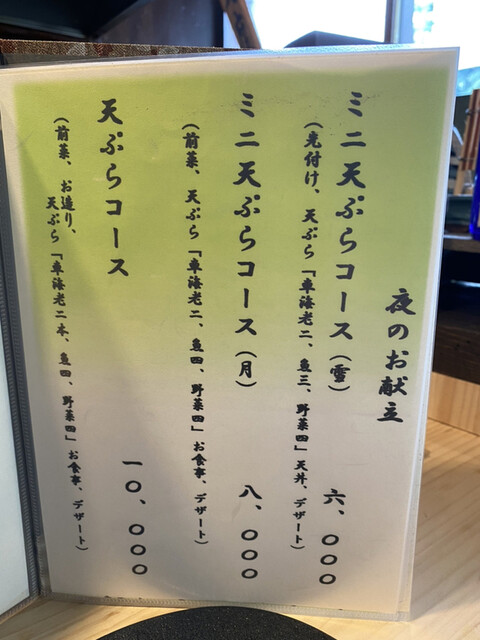 夜のお献立
ミニ天ぷらコース(雪) 六、〇〇〇
(先付け、天ぷら「車海老二、魚三、野菜四」天丼、デザート)
ミニ天ぷらコース(月) 八、〇〇〇
(前菜、天ぷら「車海老二、魚四、野菜四」お食事、デザート)
天ぷらコース 一〇、〇〇〇
(前菜、お造り、
天ぷら「車海老二本、魚四、野菜四」お食事、デザート)